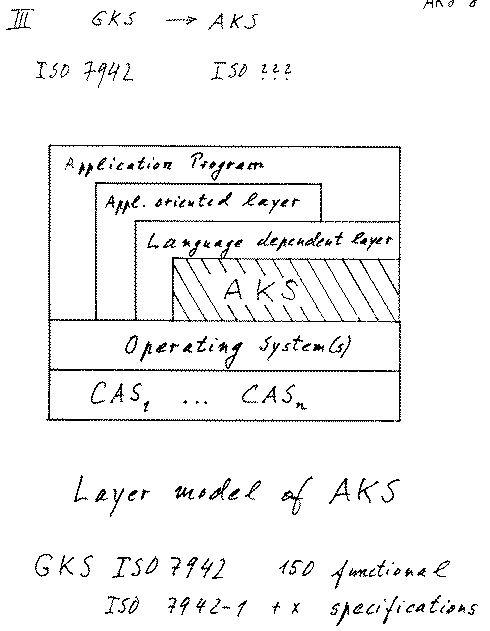 III GKS → AKS
ISO 7942 ISO ???
Application Program
Appl. oriented layer
Language dependent layer
AKS
Operating System(s)
CAS₁ ... CASₙ
Layer model of AKS
GKS ISO 7942 150 functional
ISO 7942-1 + x specifications